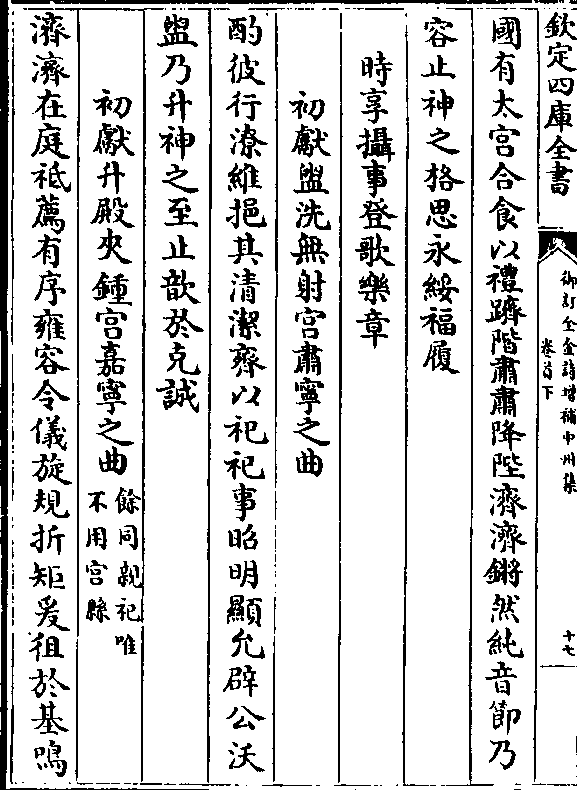 欽定四庫全書
御訂全金詩增補中州集
卷首下
十七
國有太宫合食以禮躋階肅肅降陛濟濟鏘然純音節乃
容止神之格思永綏福履
時享攝事登歌樂章
初獻盥洗無射宫肅寧之曲
酌彼行潦維挹其清潔齊以祀祀事昭明顯允辟公沃
盥乃升神之至止歆於克誠
初獻升殿夾鍾宫嘉寧之曲
餘同親祀唯
不用宫縣
濟濟在庭祗薦有序雍容令儀旋規折矩爰徂於基鳴